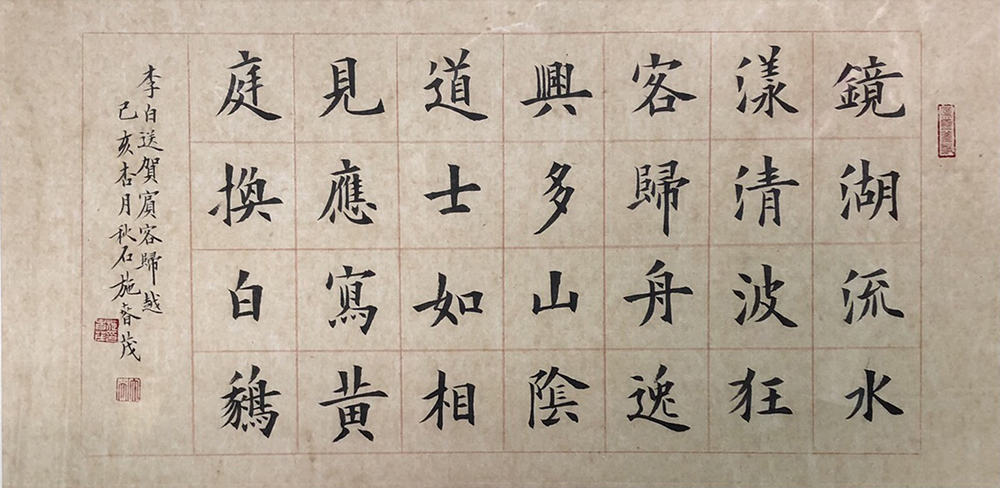 鏡湖流水
漾清波狂
客歸舟逸
興多山陰
道士如相
見應寫黄
庭換白鵝
李白送賀賓客歸越
己亥杏月秋石施春茂